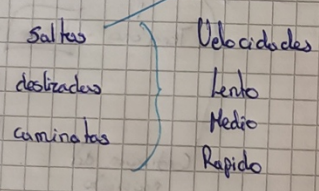 Saltos
deslizados
caminatas
Velocidades
Lento
Medio
Rapido